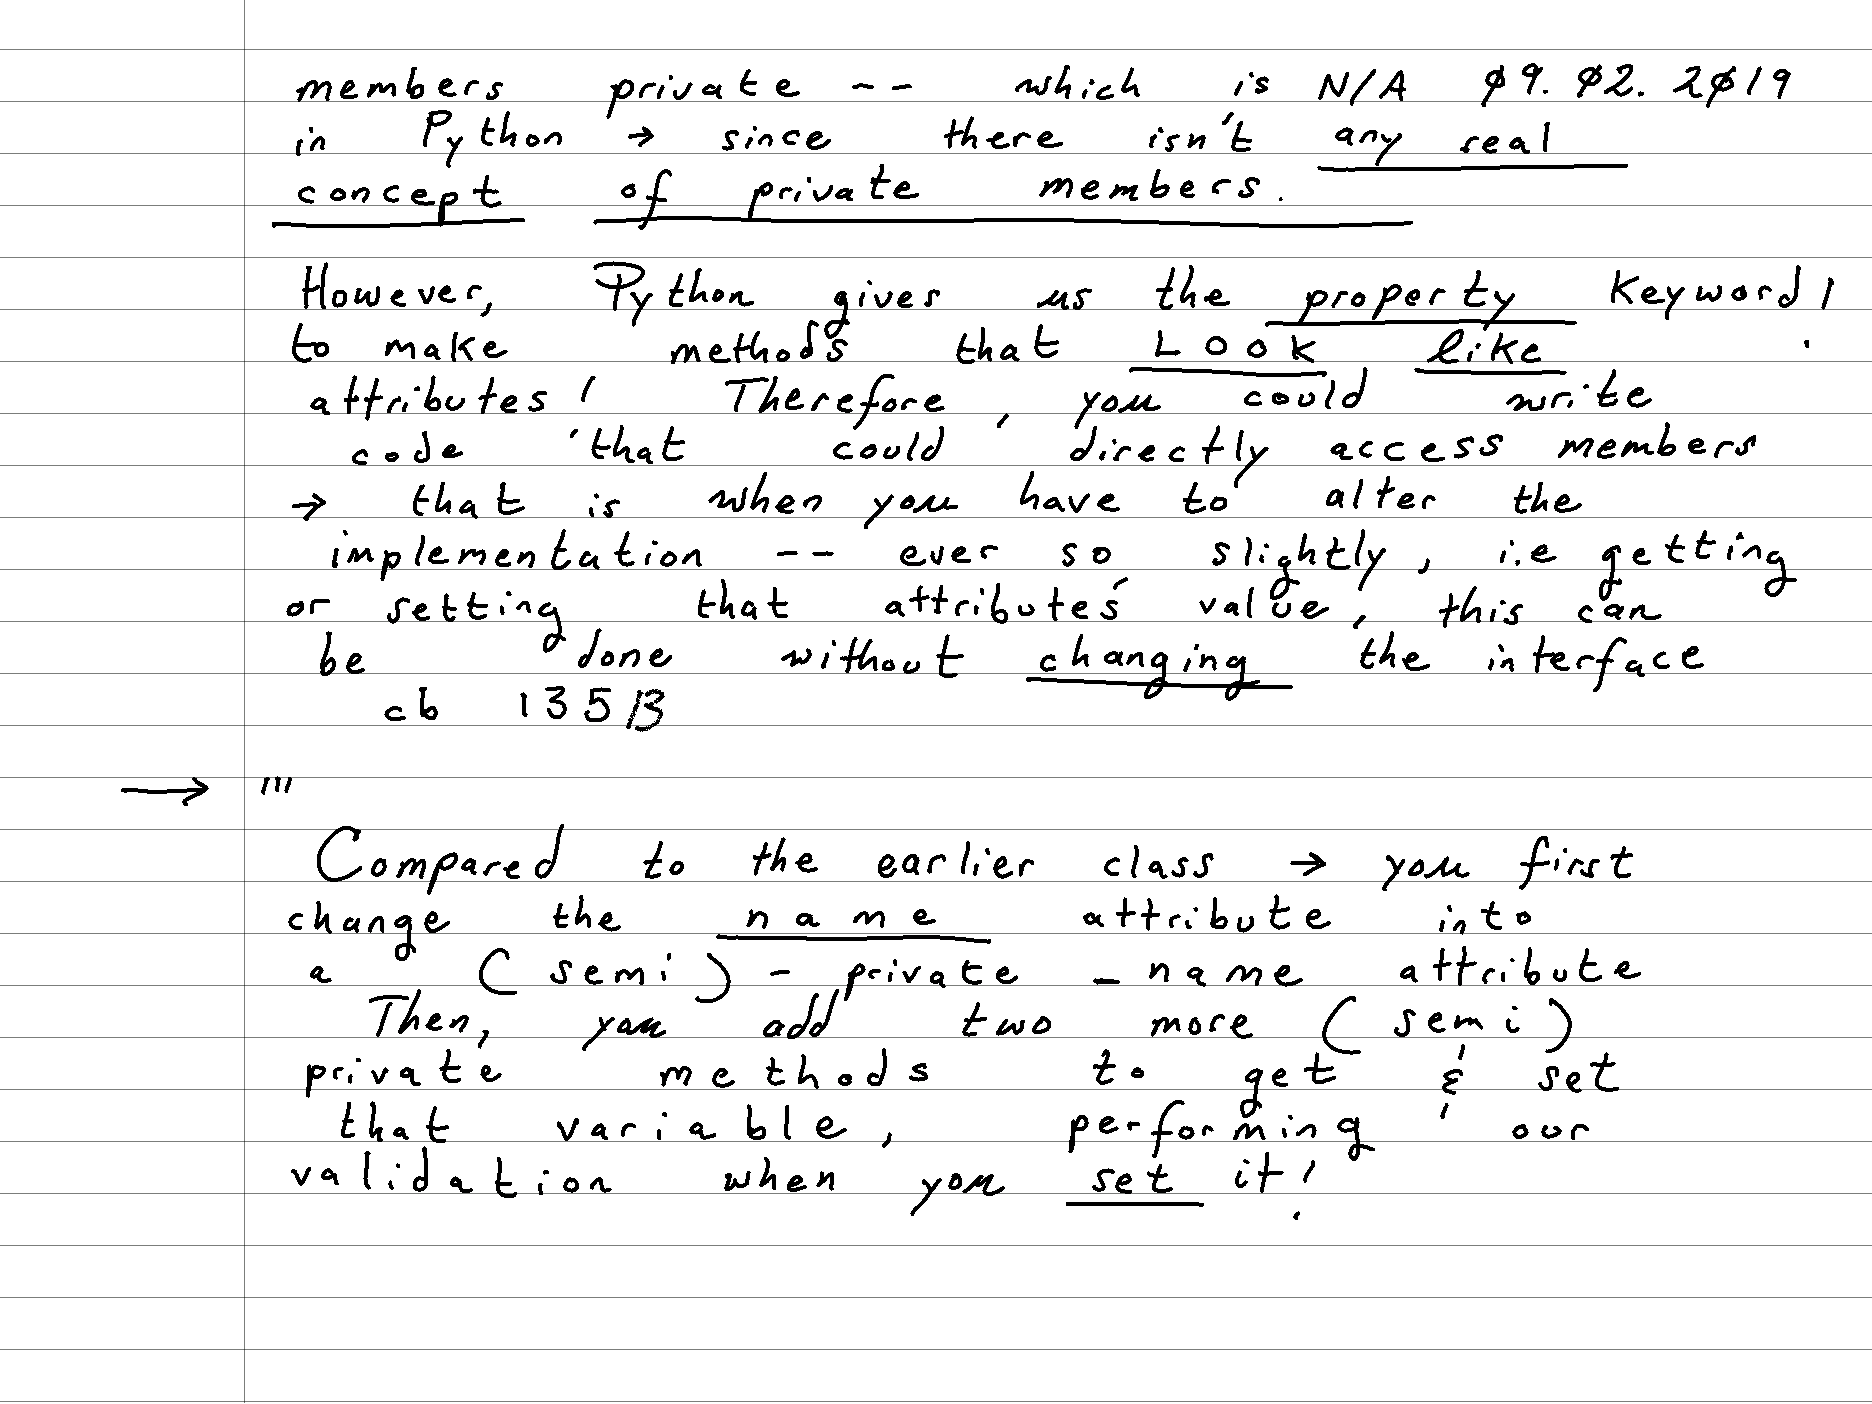 members private -- which is N/A 09.02.2019
in Python → since there isn't any real
concept of private members.
However, Python gives us the property keyword!
to make methods that LOOK like
attributes! Therefore, you could write
code that could directly access members
→ that is when you have to alter the
implementation -- ever so slightly, i.e getting
or setting that attribute's value, this can
be done without changing the interface
cb 135B
→ '''
Compared to the earlier class → you first
change the name attribute into
a (semi)-private _name attribute
Then, you add two more (semi)
private methods to get & set
that variable, performing our
validation when you set it!